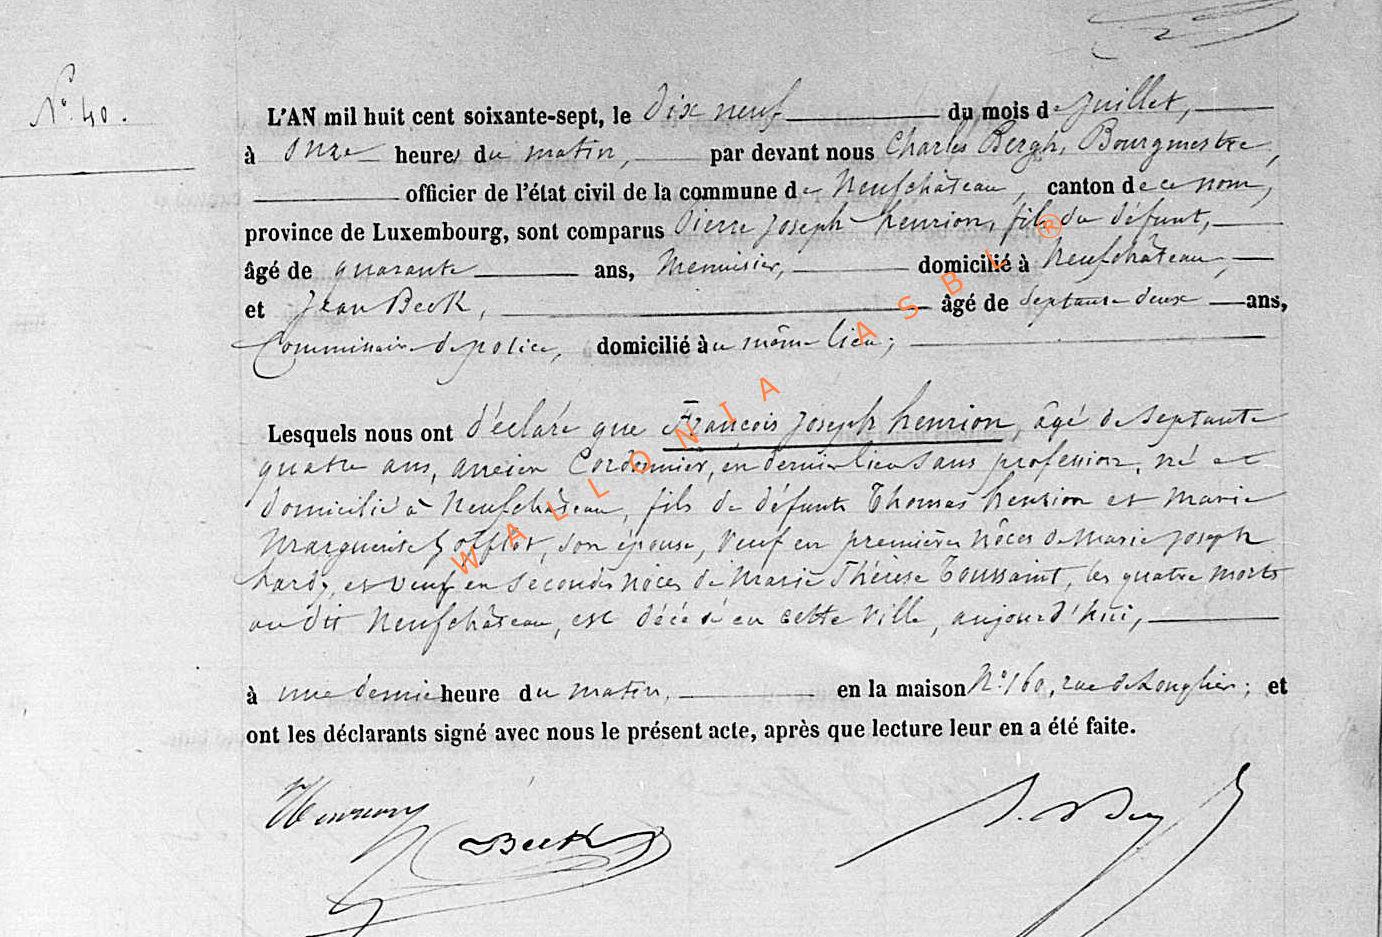 N° 40.
L'AN mil huit cent soixante-sept, le dix neuf du mois de juillet,
à onze heures du matin, par devant nous Charles Bergh, Bourgmestre,
officier de l'état civil de la commune de Neufchâteau, canton de ce nom,
province de Luxembourg, sont comparus Pierre Joseph henrion, fils du défunt,
âgé de quarante ans, Menuisier, domicilié à Neufchâteau,
et Jean Beck, âgé de septante deux ans,
Commissaire de police, domicilié au même lieu;
Lesquels nous ont déclaré que François Joseph henrion, âgé de septante
quatre ans, ancien Cordonnier, en dernier lieu sans profession, né et
domicilié à Neufchâteau, fils de défunts Thomas henrion et Marie
Marguerite Gofflot, son épouse, Veuf en premières nôces de Marie Joseph
hardy, et veuf en secondes nôces de Marie Thérèse Toussaint, les quatre morts
au dit Neufchâteau, est décédé en cette Ville, aujourd'hui,
à une demie heure du matin, en la maison N° 160, rue de Longlier; et
ont les déclarants signé avec nous le présent acte, après que lecture leur en a été faite.
Henrion
Beck
WALLONIA ASBL ®